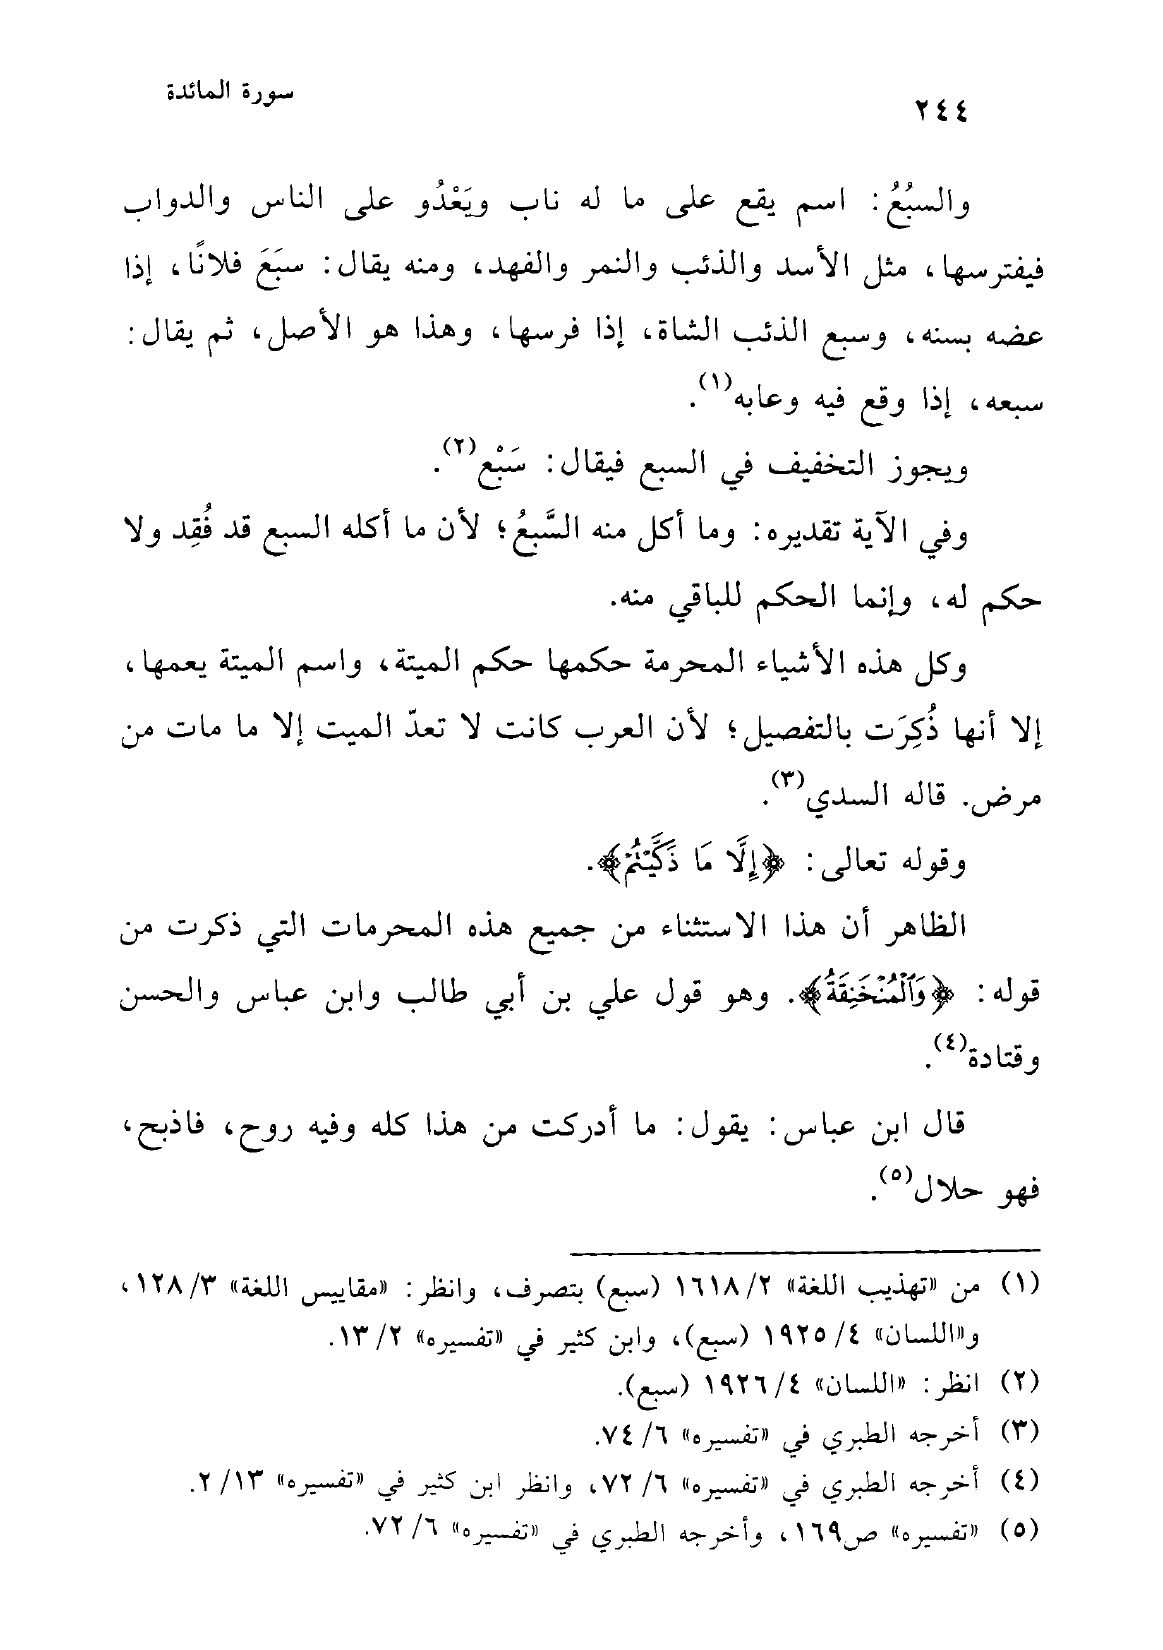 سورة المائدة
٢٤٤
والسبُعُ: اسم يقع على ما له ناب ويَعْدُو على الناس والدواب
فيفترسها، مثل الأسد والذئب والنمر والفهد، ومنه يقال: سبَعَ فلانًا، إذا
عضه بسنه، وسبع الذئب الشاة، إذا فرسها، وهذا هو الأصل، ثم يقال:
سبعه، إذا وقع فيه وعابه(١).
ويجوز التخفيف في السبع فيقال: سَبْع(٢).
وفي الآية تقديره: وما أكل منه السَّبعُ؛ لأن ما أكله السبع قد فُقِد ولا
حكم له، وإنما الحكم للباقي منه.
وكل هذه الأشياء المحرمة حكمها حكم الميتة، واسم الميتة يعمها،
إلا أنها ذُكِرَت بالتفصيل؛ لأن العرب كانت لا تعدّ الميت إلا ما مات من
مرض. قاله السدي(٣).
وقوله تعالى: ﴿إِلَّا مَا ذَكَّيْتُمْ﴾.
الظاهر أن هذا الاستثناء من جميع هذه المحرمات التي ذكرت من
قوله: ﴿وَٱلْمُنْخَنِقَةُ﴾. وهو قول علي بن أبي طالب وابن عباس والحسن
وقتادة(٤).
قال ابن عباس: يقول: ما أدركت من هذا كله وفيه روح، فاذبح،
فهو حلال(٥).
(١) من «تهذيب اللغة» ٢/ ١٦١٨ (سبع) بتصرف، وانظر: «مقاييس اللغة» ٣/ ١٢٨،
و«اللسان» ٤/ ١٩٢٥ (سبع)، وابن كثير في «تفسيره» ٢/ ١٣.
(٢) انظر: «اللسان» ٤/ ١٩٢٦ (سبع).
(٣) أخرجه الطبري في «تفسيره» ٦/ ٧٤.
(٤) أخرجه الطبري في «تفسيره» ٦/ ٧٢، وانظر ابن كثير في «تفسيره» ١٣/ ٢.
(٥) «تفسيره» ص١٦٩، وأخرجه الطبري في «تفسيره» ٦/ ٧٢.